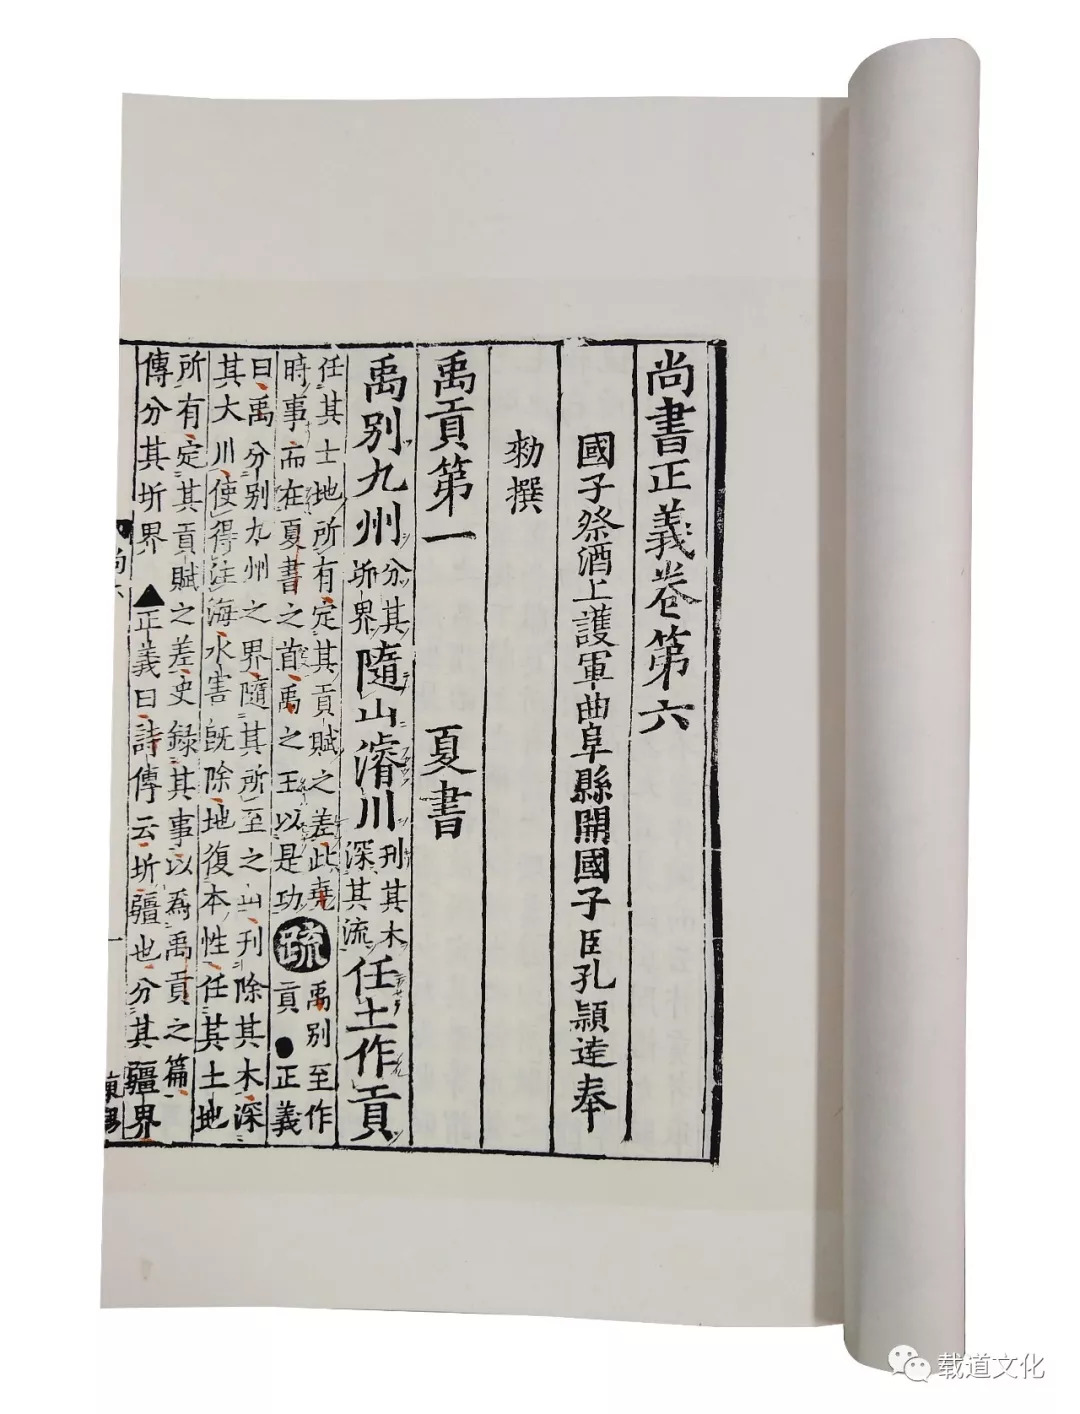 尚書正義卷第六
國子祭酒上護軍曲阜縣開國子臣孔穎達奉
勑撰
禹貢第一 夏書
禹別九州 分其圻界 隨山濬川 刊其木深其流 任土作貢
任其土地所有定其貢賦之差此堯
時事而在夏書之首禹之王以是功
疏 禹別至作貢●正義
曰禹分別九州之界隨其所至之山刊除其木深
其大川使得注海水害既除地復本性任其土地
所有定其貢賦之差史録其事以爲禹貢之篇
傳分其圻界▲正義曰詩傳云圻疆也分其疆界
载道文化